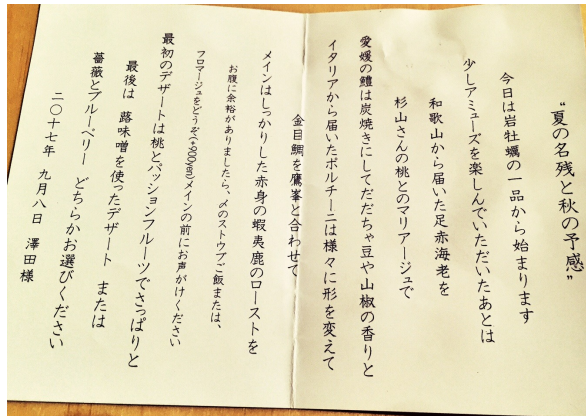 “夏の名残と秋の予感”
今日は岩牡蠣の一品から始まります
少しアミューズを楽しんでいただいたあとは
和歌山から届いた足赤海老を
杉山さんの桃とのマリアージュで
愛媛の鱧は炭焼きにしてだだちゃ豆や山椒の香りと
イタリアから届いたポルチーニは様々に形を変えて
金目鯛を鷹峯と合わせて
メインはしっかりした赤身の蝦夷鹿のローストを
お腹に余裕がありましたら、〆のストウブご飯または、
フロマージュをどうぞ(+900yen)メインの前にお声がけください
最初のデザートは桃とパッションフルーツでさっぱりと
最後は 蕗味噌を使ったデザート または
薔薇とブルーベリー どちらかお選びください
二〇十七年 九月八日 澤田様